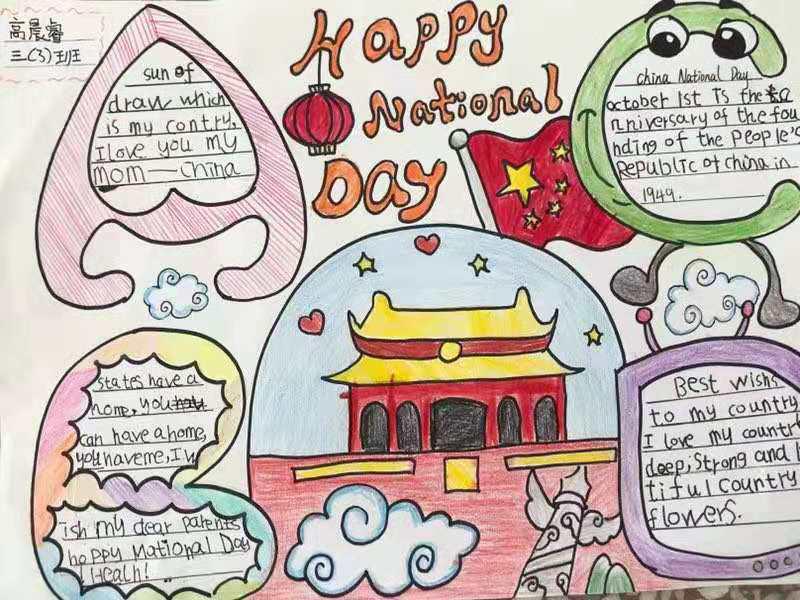 高晨睿
三(3)班
Happy
National
Day
sun of
draw which
is my contry,
I love you my
mom—China
china National Day
october 1st Is the
nniversary of the fou
nding of the People's
Republic of china in
1949.
states have a
home, you
can have a home,
you have me, I w
ish my dear parents
happy National Day
Health!
Best wish
to my country
I love my countr
deep, Strong and
tiful country
flowers.